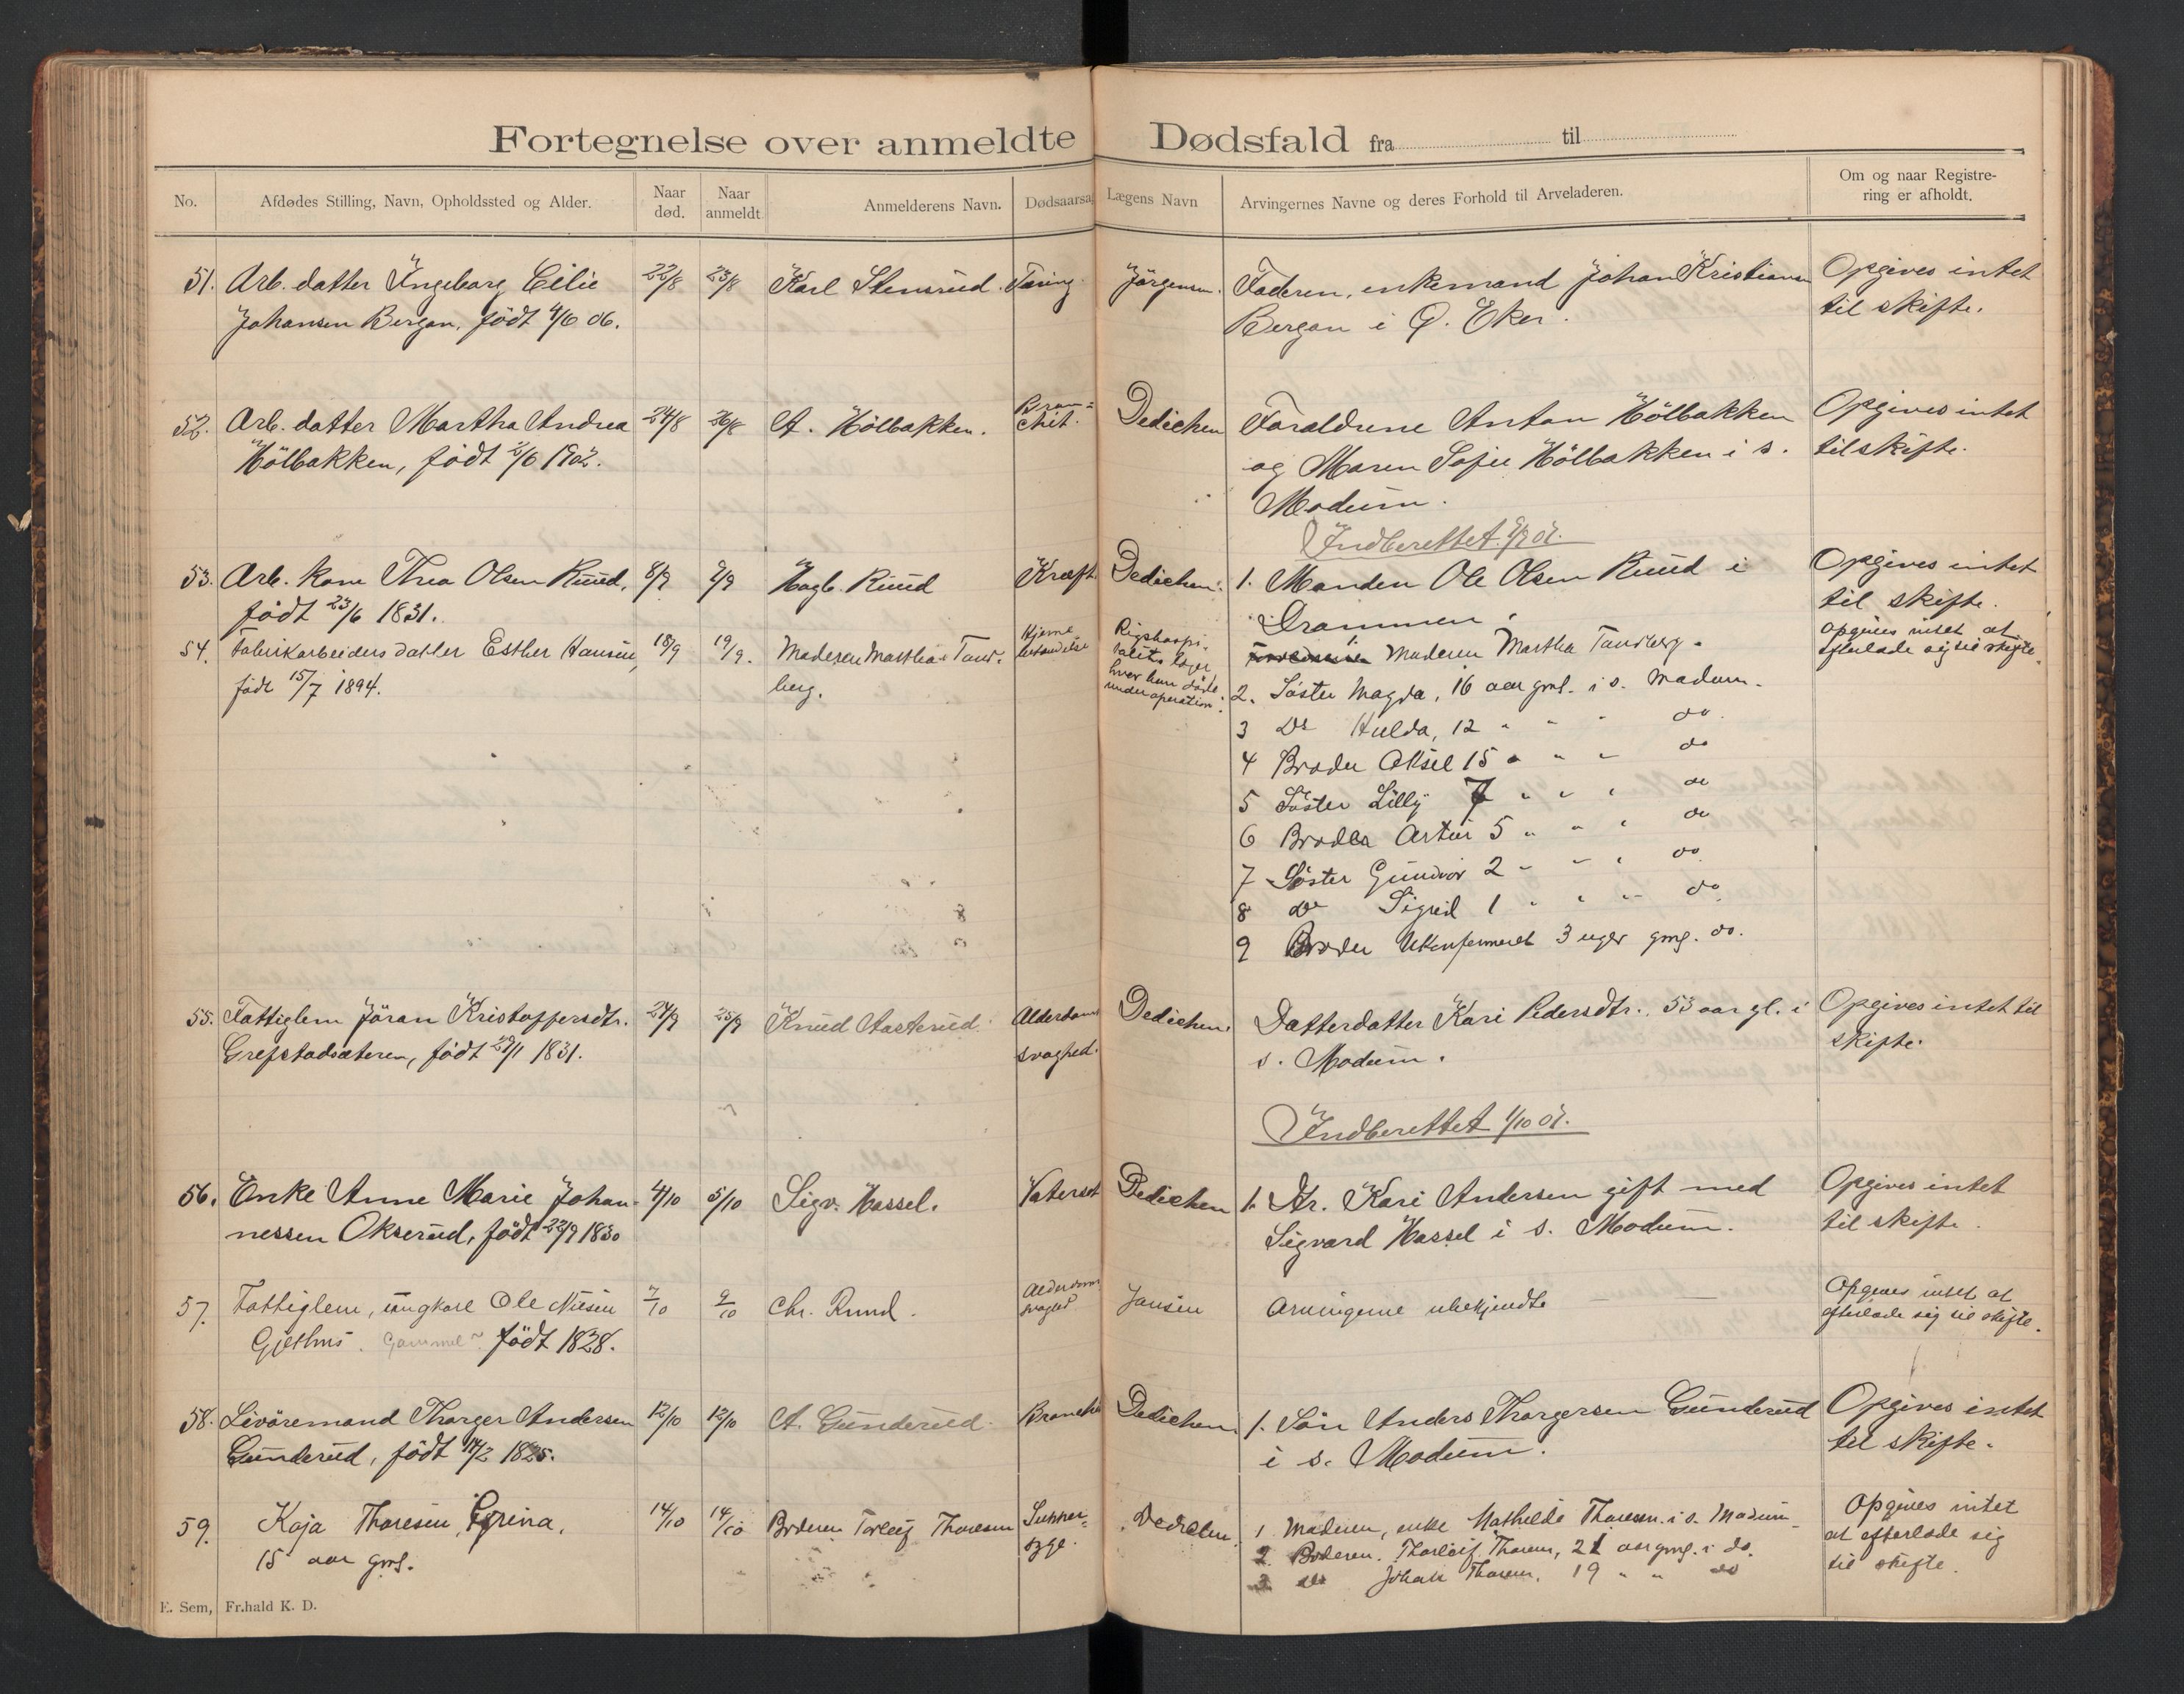 Fortegnelse over anmeldte Dødsfald fra til
No. Afdødes Stilling, Navn, Opholdssted og Alder. Naar død. Naar anmeldt. Anmelderens Navn. Dødsaarsag Lægens Navn Arvingernes Navne og deres Forhold til Arveladeren. Om og naar Registrering er afholdt.
51. Arb. datter Ingeborg Cilie 22/8 23/8 Karl Stensrud. Tæring. Jörgensen. Faderen, enkemand Johan Kristiansen Opgives intet
Johansen Bergan, födt 4/6 06. Bergan i Ö. Eker. til skifte.
52. Arb. datter Martha Andrea 24/8 26/8 A. Hölbakken. Bron= chit. Dedichen Forældrene Anton Hölbakken Opgives intet
Hölbakken, födt 2/6 1902. og Maren Sofie Hölbakken i s. til skifte.
Modum.
Indberettet 2/9 07.
53. Arb. kone Thea Olsen Ruud, 8/9 9/9 Hagb. Ruud Kræft. Dedichen. 1. Manden Ole Olsen Ruud i Opgives intet
födt 23/6 1831. Drammen. til skifte.
54. Fabrikarbeiders datter Esther Hansen, 18/9 19/9. Moderen Martha Tand- Hjerne betændelse Rigshospi- talets læger 1. Moderen Martha Tandberg. Opgives intet at
födt 15/7 1894. berg. hvor hun döde under operation. 2. Söster Magda, 16 aar gml. i s. Modum. efterlade sig til skifte.
3 Do Hulda, 12 " " " do.
4 Broder Aksel 15 " " " do
5 Söster Lilly 7 " " " do
6 Broder Artur 5 " " " do
7 Söster Gundvor 2 " " " do
8 do Sigrid 1 " " " do.
9 Broder Ukonfirmeret 3 uger gml. do.
55. Fattiglem Jöran Kristoffersdtr. 24/9 25/9 Knud Aasterud. Alderdoms Dedichen. Datterdatter Kari Pedersdtr. 53 aar gl. i Opgives intet til
Grefstadsæteren, födt 29/1 1831. svaghed. s. Modum. skifte.
Indberettet 1/10 07.
56. Enke Anne Marie Johan- 4/10 5/10 Sigv. Hassel. Vatersot Dedichen 1. Dtr. Kari Andersen gift med Opgives intet
nessen Okserud, födt 22/9 1830 Sigvard Hassel i s. Modum. til skifte.
57. Fattiglem, ungkarl Ole Nilsen 7/10 9/10 Chr. Ruud. Alderdoms svaghed Jansen Arvingerne ubekjendte Opgives intet at
Gjethus. Gammel födt 1828. efterlade sig til skifte.
58. Livöremand Thorger Andersen 12/10 12/10 A. Gunderud. Bronchit Dedichen. 1. Sön Anders Thorgersen Gunderud Opgives intet
Gunderud, födt 14/2 1825. i s. Modum. til skifte.
59. Kaja Thoresen, Grina, 14/10 14/10 Broderen Torleif Thoresen Sukker- Dedichen. 1 Moderen, enke Mathilde Thoresen i s. Modum Opgives intet
15 aar gml. syge. 2 Broderen. Thorleif Thoresen, 21 aar gml. i do. at efterlade sig
3 do Johan Thoresen, 19 " " do til skifte.
E. Sem, Fr.hald K. D.